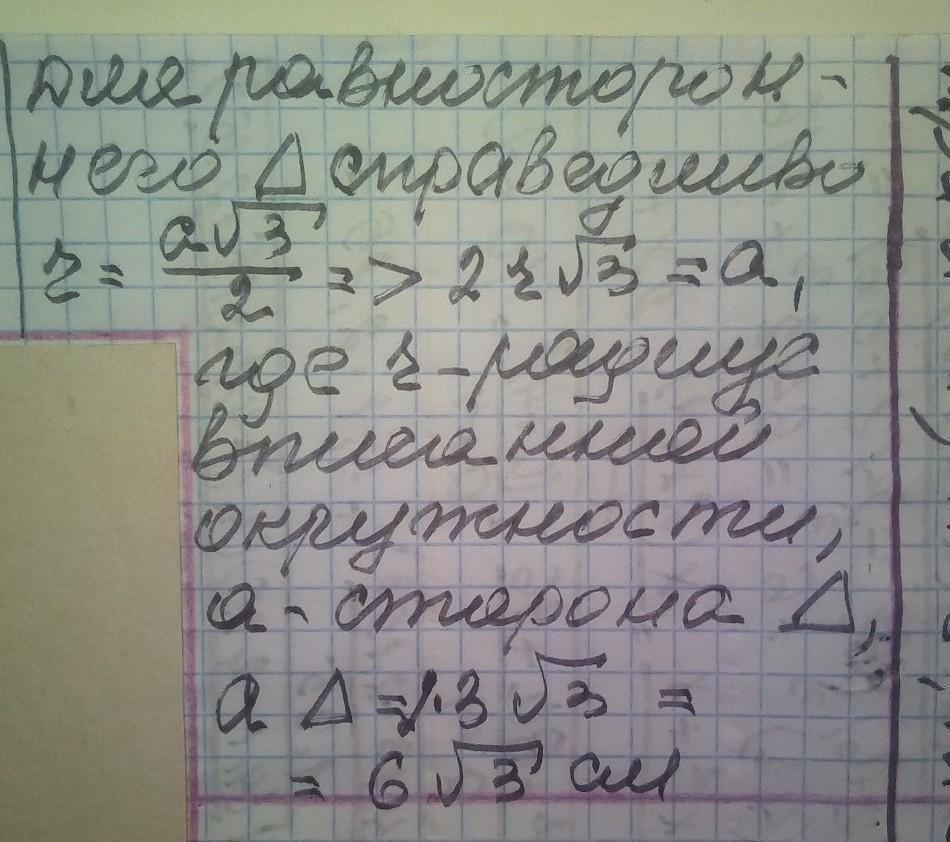 для равносторон-
него Δ справедливо
r = a√3/2 => 2r√3 = a,
где r - радиус
вписанной
окружности,
a - сторона Δ,
a Δ = 2·3√3 =
= 6√3 см